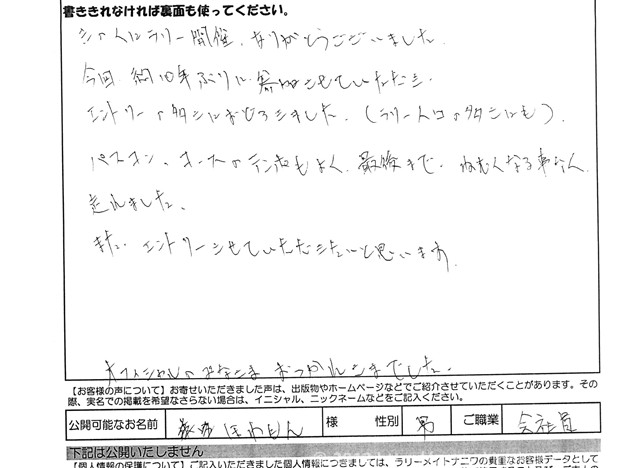 書ききれなければ裏面も使ってください。
ラリー開催、ありがとうございました。
今回 約10年ぶりに参加させていただき、
エントリーの多さにおどろきました。(ラリー人口の多さにも)。
コースのテンポもよく、最後まで、ねむくなる事なく
走れました。
また、エントリーさせていただきたいと思います。
オフィシャルのみなさま おつかれさまでした。
【お客様の声について】お寄せいただきました声は、出版物やホームページなどでご紹介させていただくことがあります。その
際、実名での掲載を希望なさらない場合は、イニシャル、ニックネームなどをご記入ください。
公開可能なお名前 様 性別 男 ご職業 会社員
下記は公開いたしません
【個人情報の保護について】ご記入いただきました個人情報につきましては、ラリーメイトナニワの貴重なお客様データとして